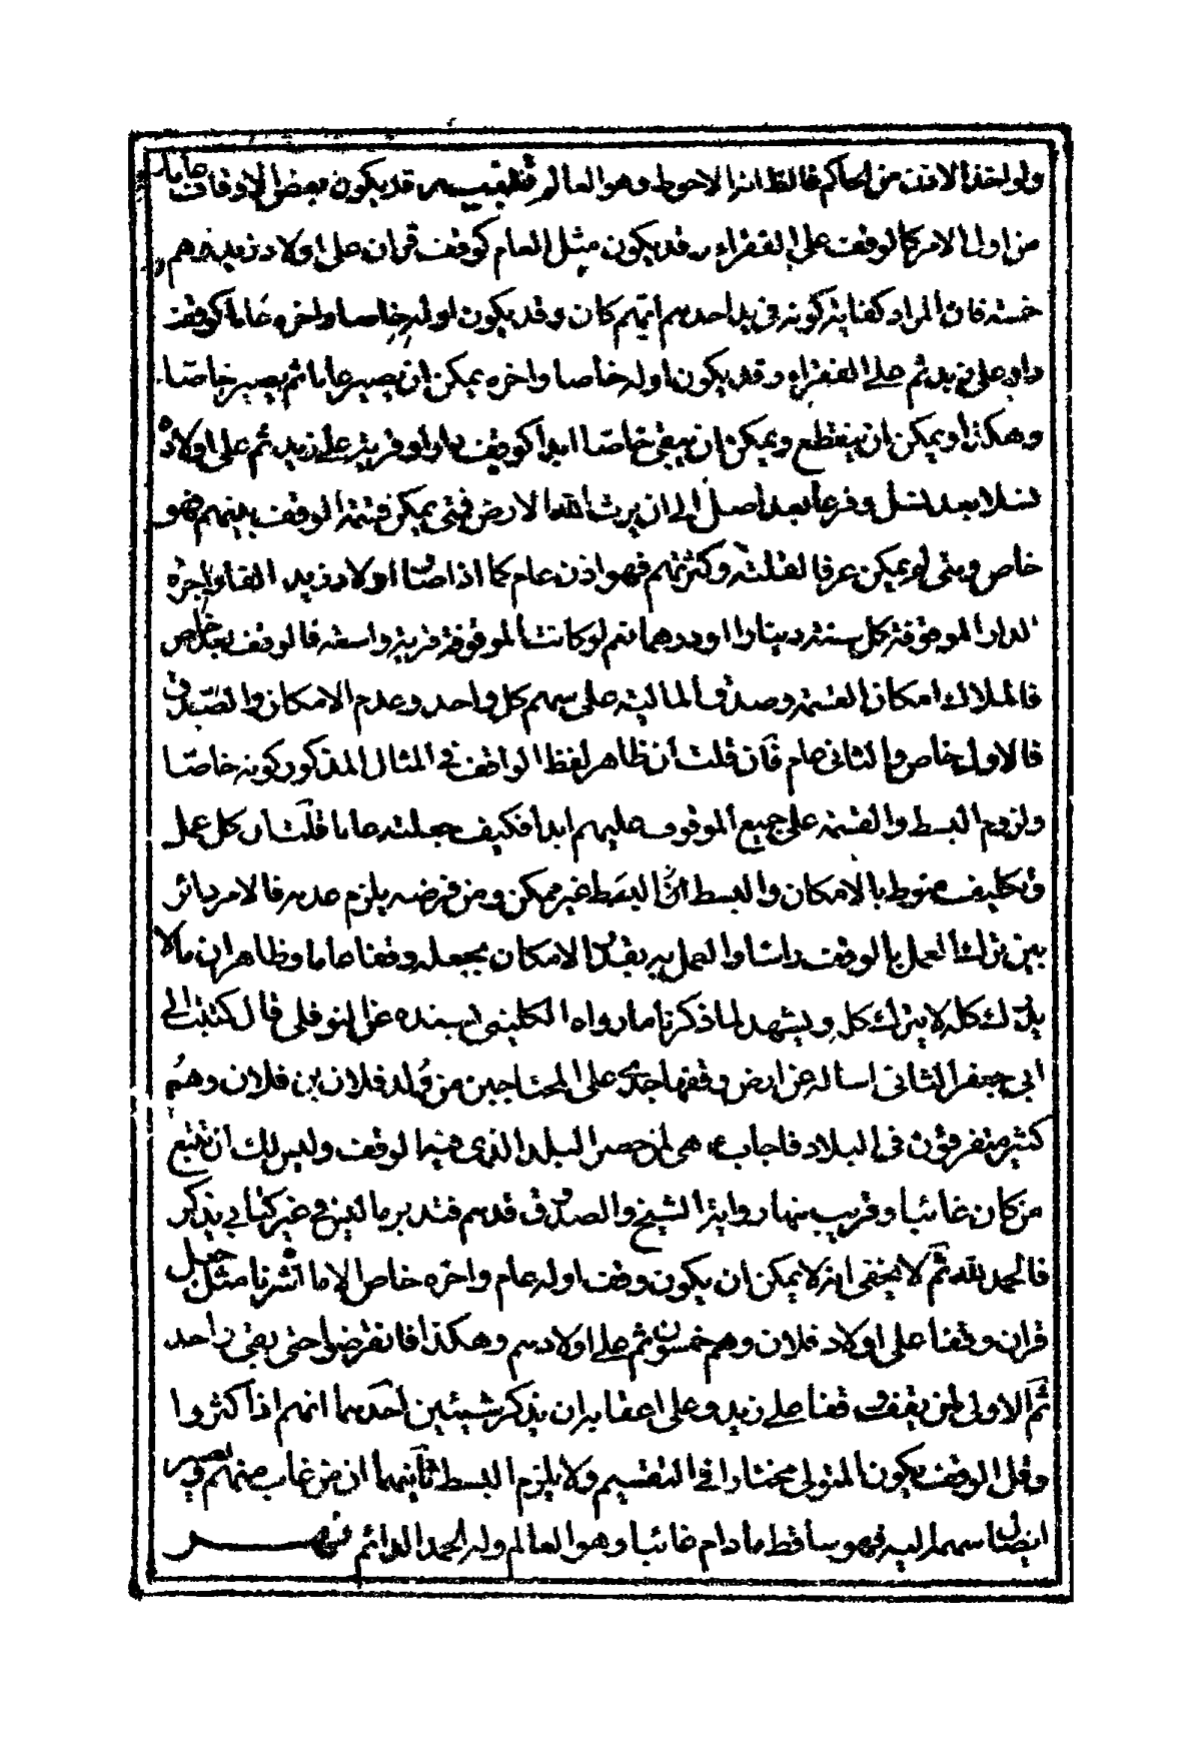 ولو اخذ الاذن من الحاكم فالظاهر انه الاحوط وهو العالم تعقيب قد يكون بعض الاوقاف عاما
من اول الامر كالوقف على الفقراء وقد يكون مثل العام كوقف قران على اولاد زيد وهم
خمسة فان المراد كفاية كونه في يد احدهم ايهم كان وقد يكون اوله خاصا واخره عاما كوقف
دار على زيد ثم على الفقراء وقد يكون اوله خاصا واخره يمكن ان يصير عاما ثم يصير خاصا
وهكذا ويمكن ان ينقطع ويمكن ان يبقى خاصا ابدا كوقف دار او قرية على زيد ثم على اولاده
نسلا بعد نسل وفرعا بعد اصل الى ان يرث الله الارض فمتى يمكن قسمة الوقف بينهم فهو
خاص ومتى لم يمكن عرفا لقلته وكثرتهم فهو اذن عام كما اذا صار اولاد زيد الفا واجرة
الدار الموقوفة كل سنة دينارا او درهما نعم لو كانت الموقوفة قرية واسعة فالوقف بعد خاص
فالملاك امكان القسمة وصدق المالية على سهم كل واحد وعدم الامكان والصدق
فالاول خاص والثاني عام فان قلت ان ظاهر لفظ الواقف في المثال المذكور كونه خاصا
ولزوم البسط والقسمة على جميع الموقوف عليهم ابدا فكيف جعلته عاما قلت ان كل عمل
وتكليف منوط بالامكان والبسط اذا البسط غير ممكن ومن فرضه يلزم عدمه فالامر دائر
بين ترك العمل بالوقف راسا والعمل به بقدر الامكان بجعله وقفا عاما وظاهر ان ما لا
يدرك كله لا يترك كله ويشهد لما ذكرنا ما رواه الكليني بسنده عن النوفلي قال كتبت الى
ابي جعفر الثاني اساله عن ارض وقفها جدي على المحتاجين من ولد فلان بن فلان وهم
كثير متفرقون في البلاد فاجاب هي لمن حضر البلد الذي فيه الوقف وليس لك ان تتبع
من كان غائبا وقريب منها رواية الشيخ والصدوق قدهم فتدبر ما ليس في غير كتابي يذكر
فالحمد لله ثم لا يخفى انه لا يمكن ان يكون وقف اوله عام واخره خاص الا ما اشرنا مثل جعل
قران وقفا على اولاد فلان وهم خمسون ثم على اولادهم وهكذا فانقرضوا حتى بقي واحد
ثم الاولى لمن يقف وقفا على زيد وعلى اعقابه ان يذكر شيئين احدهما انهم اذا كثروا
وقل الوقف يكون المتولي مختارا في التقسيم ولا يلزم البسط ثانيهما ان من غاب منهم
ايصال سهمه اليه فهو ساقط ما دام غائبا وهو العالم وله الحمد الدائم